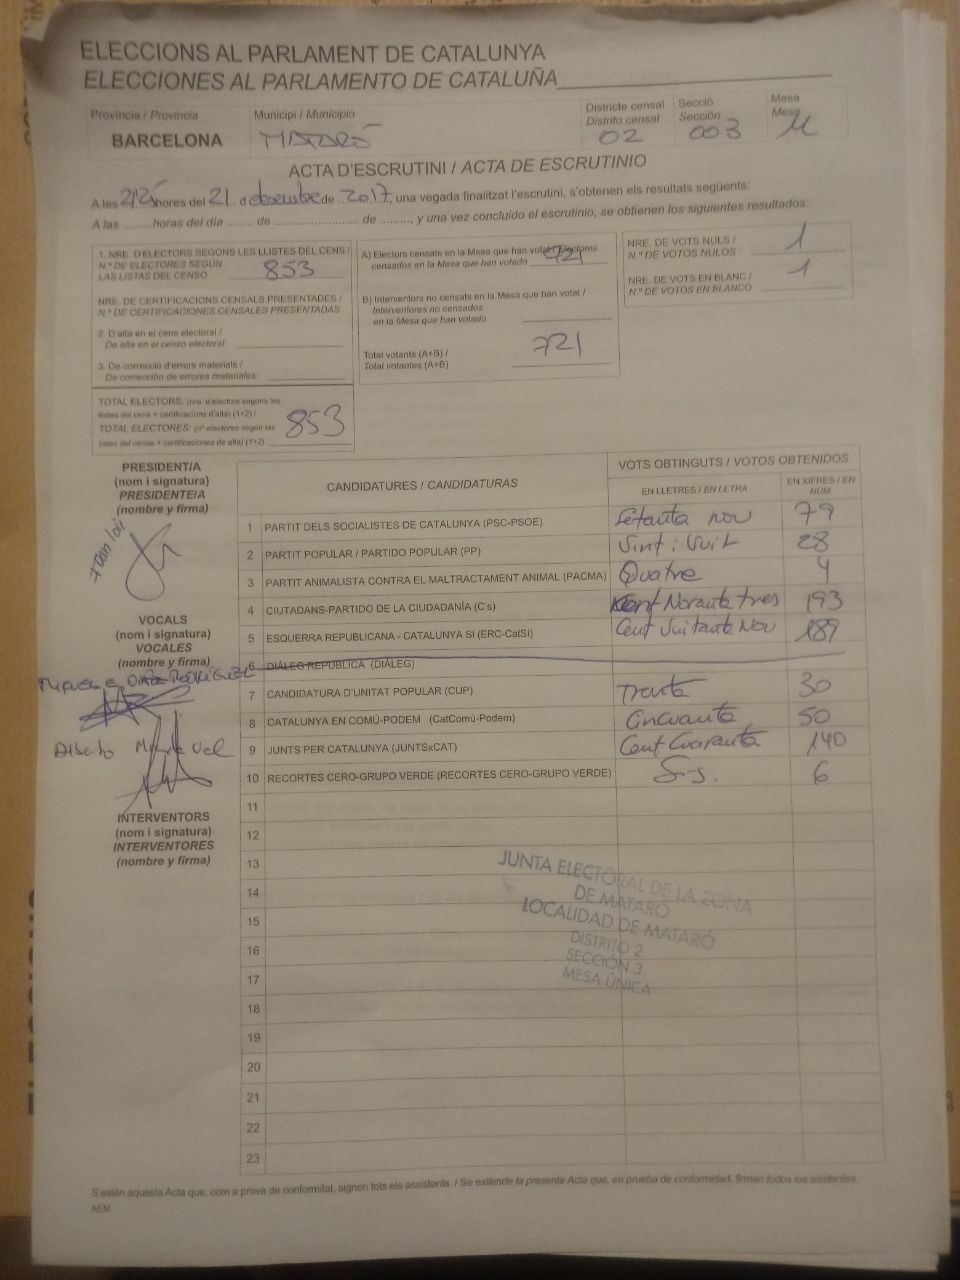 ELECCIONS AL PARLAMENT DE CATALUNYA
ELECCIONES AL PARLAMENTO DE CATALUÑA
Província / Provincia
BARCELONA
Municipi / Municipio
MATARÓ
Districte censal
Distrito censal
02
Secció
Sección
003
Mesa
Mesa
U
ACTA D'ESCRUTINI / ACTA DE ESCRUTINIO
A les 21'25 hores del 21 d desembre de 2017, una vegada finalitzat l'escrutini, s'obtenen els resultats següents:
A las ........horas del día ........ de ........................ de ........., y una vez concluido el escrutinio, se obtienen los siguientes resultados:
1. NRE. D'ELECTORS SEGONS LES LLISTES DEL CENS /
N.º DE ELECTORES SEGÚN
LAS LISTAS DEL CENSO 853
NRE. DE CERTIFICACIONS CENSALS PRESENTADES /
N.º DE CERTIFICACIONES CENSALES PRESENTADAS
2. D'alta en el cens electoral /
De alta en el censo electoral:
3. De correcció d'errors materials /
De corrección de errores materiales:
TOTAL ELECTORS: (nre. d'electors segons les
llistes del cens + certificacions d'alta) (1+2) /
TOTAL ELECTORES: (nº electores según las
listas del censo + certificaciones de alta) (1+2) 853
A) Electors censats en la Mesa que han votat / Electores
censados en la Mesa que han votado 721
B) Interventors no censats en la Mesa que han votat /
Interventores no censados
en la Mesa que han votado
Total votants (A+B) /
Total votantes (A+B) 721
NRE. DE VOTS NULS /
N.º DE VOTOS NULOS 1
NRE. DE VOTS EN BLANC /
N.º DE VOTOS EN BLANCO 1
PRESIDENT/A
(nom i signatura)
PRESIDENTE/A
(nombre y firma)
VOCALS
(nom i signatura)
VOCALES
(nombre y firma)
INTERVENTORS
(nom i signatura)
INTERVENTORES
(nombre y firma)
CANDIDATURES / CANDIDATURAS
VOTS OBTINGUTS / VOTOS OBTENIDOS
EN LLETRES / EN LETRA
EN XIFRES / EN NUM
1 PARTIT DELS SOCIALISTES DE CATALUNYA (PSC-PSOE) Setanta nou 79
2 PARTIT POPULAR / PARTIDO POPULAR (PP) Vint i Vuit 28
3 PARTIT ANIMALISTA CONTRA EL MALTRACTAMENT ANIMAL (PACMA) Quatre 4
4 CIUTADANS-PARTIDO DE LA CIUDADANÍA (C's) Cent Noranta tres 193
5 ESQUERRA REPUBLICANA - CATALUNYA SI (ERC-CatSI) Cent Vuitanta Nou 189
6 DIÀLEG REPÚBLICA (DIÀLEG)
7 CANDIDATURA D'UNITAT POPULAR (CUP) Trenta 30
8 CATALUNYA EN COMÚ-PODEM (CatComú-Podem) Cincuanta 50
9 JUNTS PER CATALUNYA (JUNTSxCAT) Cent Cuaranta 140
10 RECORTES CERO-GRUPO VERDE (RECORTES CERO-GRUPO VERDE) Sis. 6
11
12
13
14
15
16
17
18
19
20
21
22
23
JUNTA ELECTORAL DE LA ZONA
DE MATARÓ
LOCALIDAD DE MATARÓ
DISTRITO 2
SECCIÓN 3
MESA ÚNICA
S'estén aquesta Acta que, com a prova de conformitat, signen tots els assistents. / Se extiende la presente Acta que, en prueba de conformidad, firman todos los asistentes.
AEM